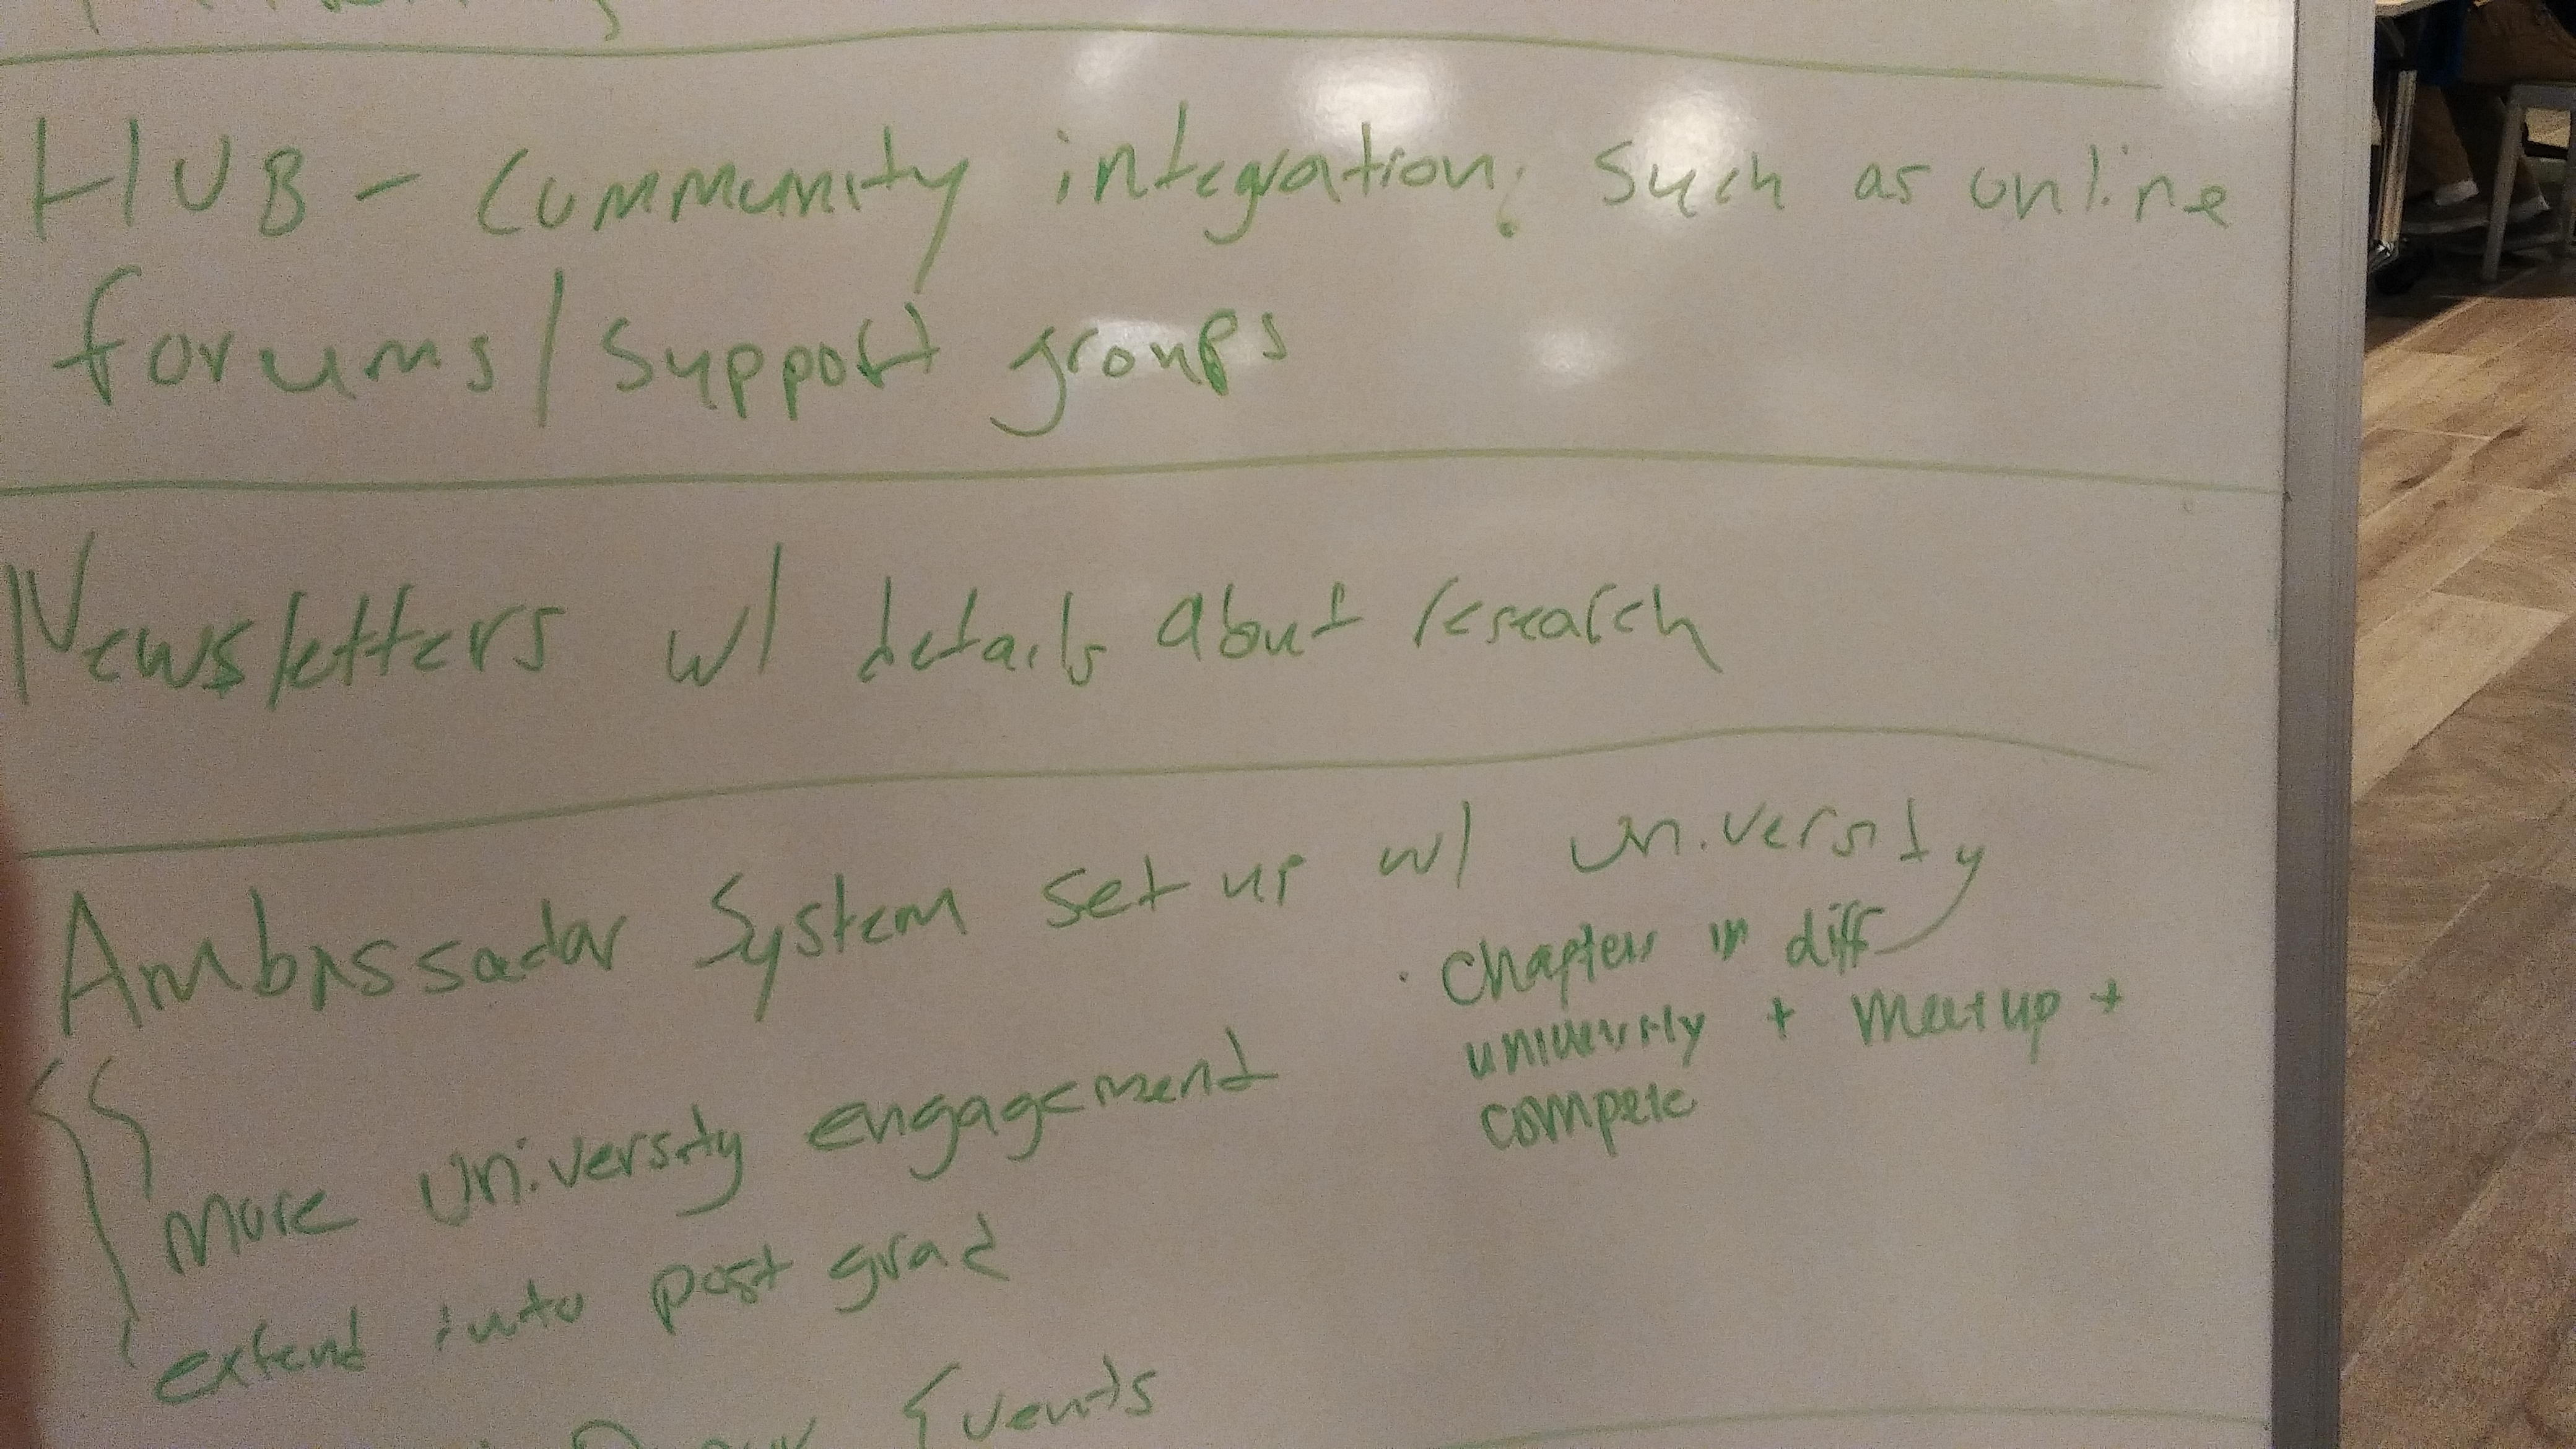 HUB - Community integration; such as online
forums/support groups
Newsletters w/ details about research
Ambassador System set up w/ university
· Chapters in diff
university + meet up +
compete
More University engagement
extend into post grad
Events